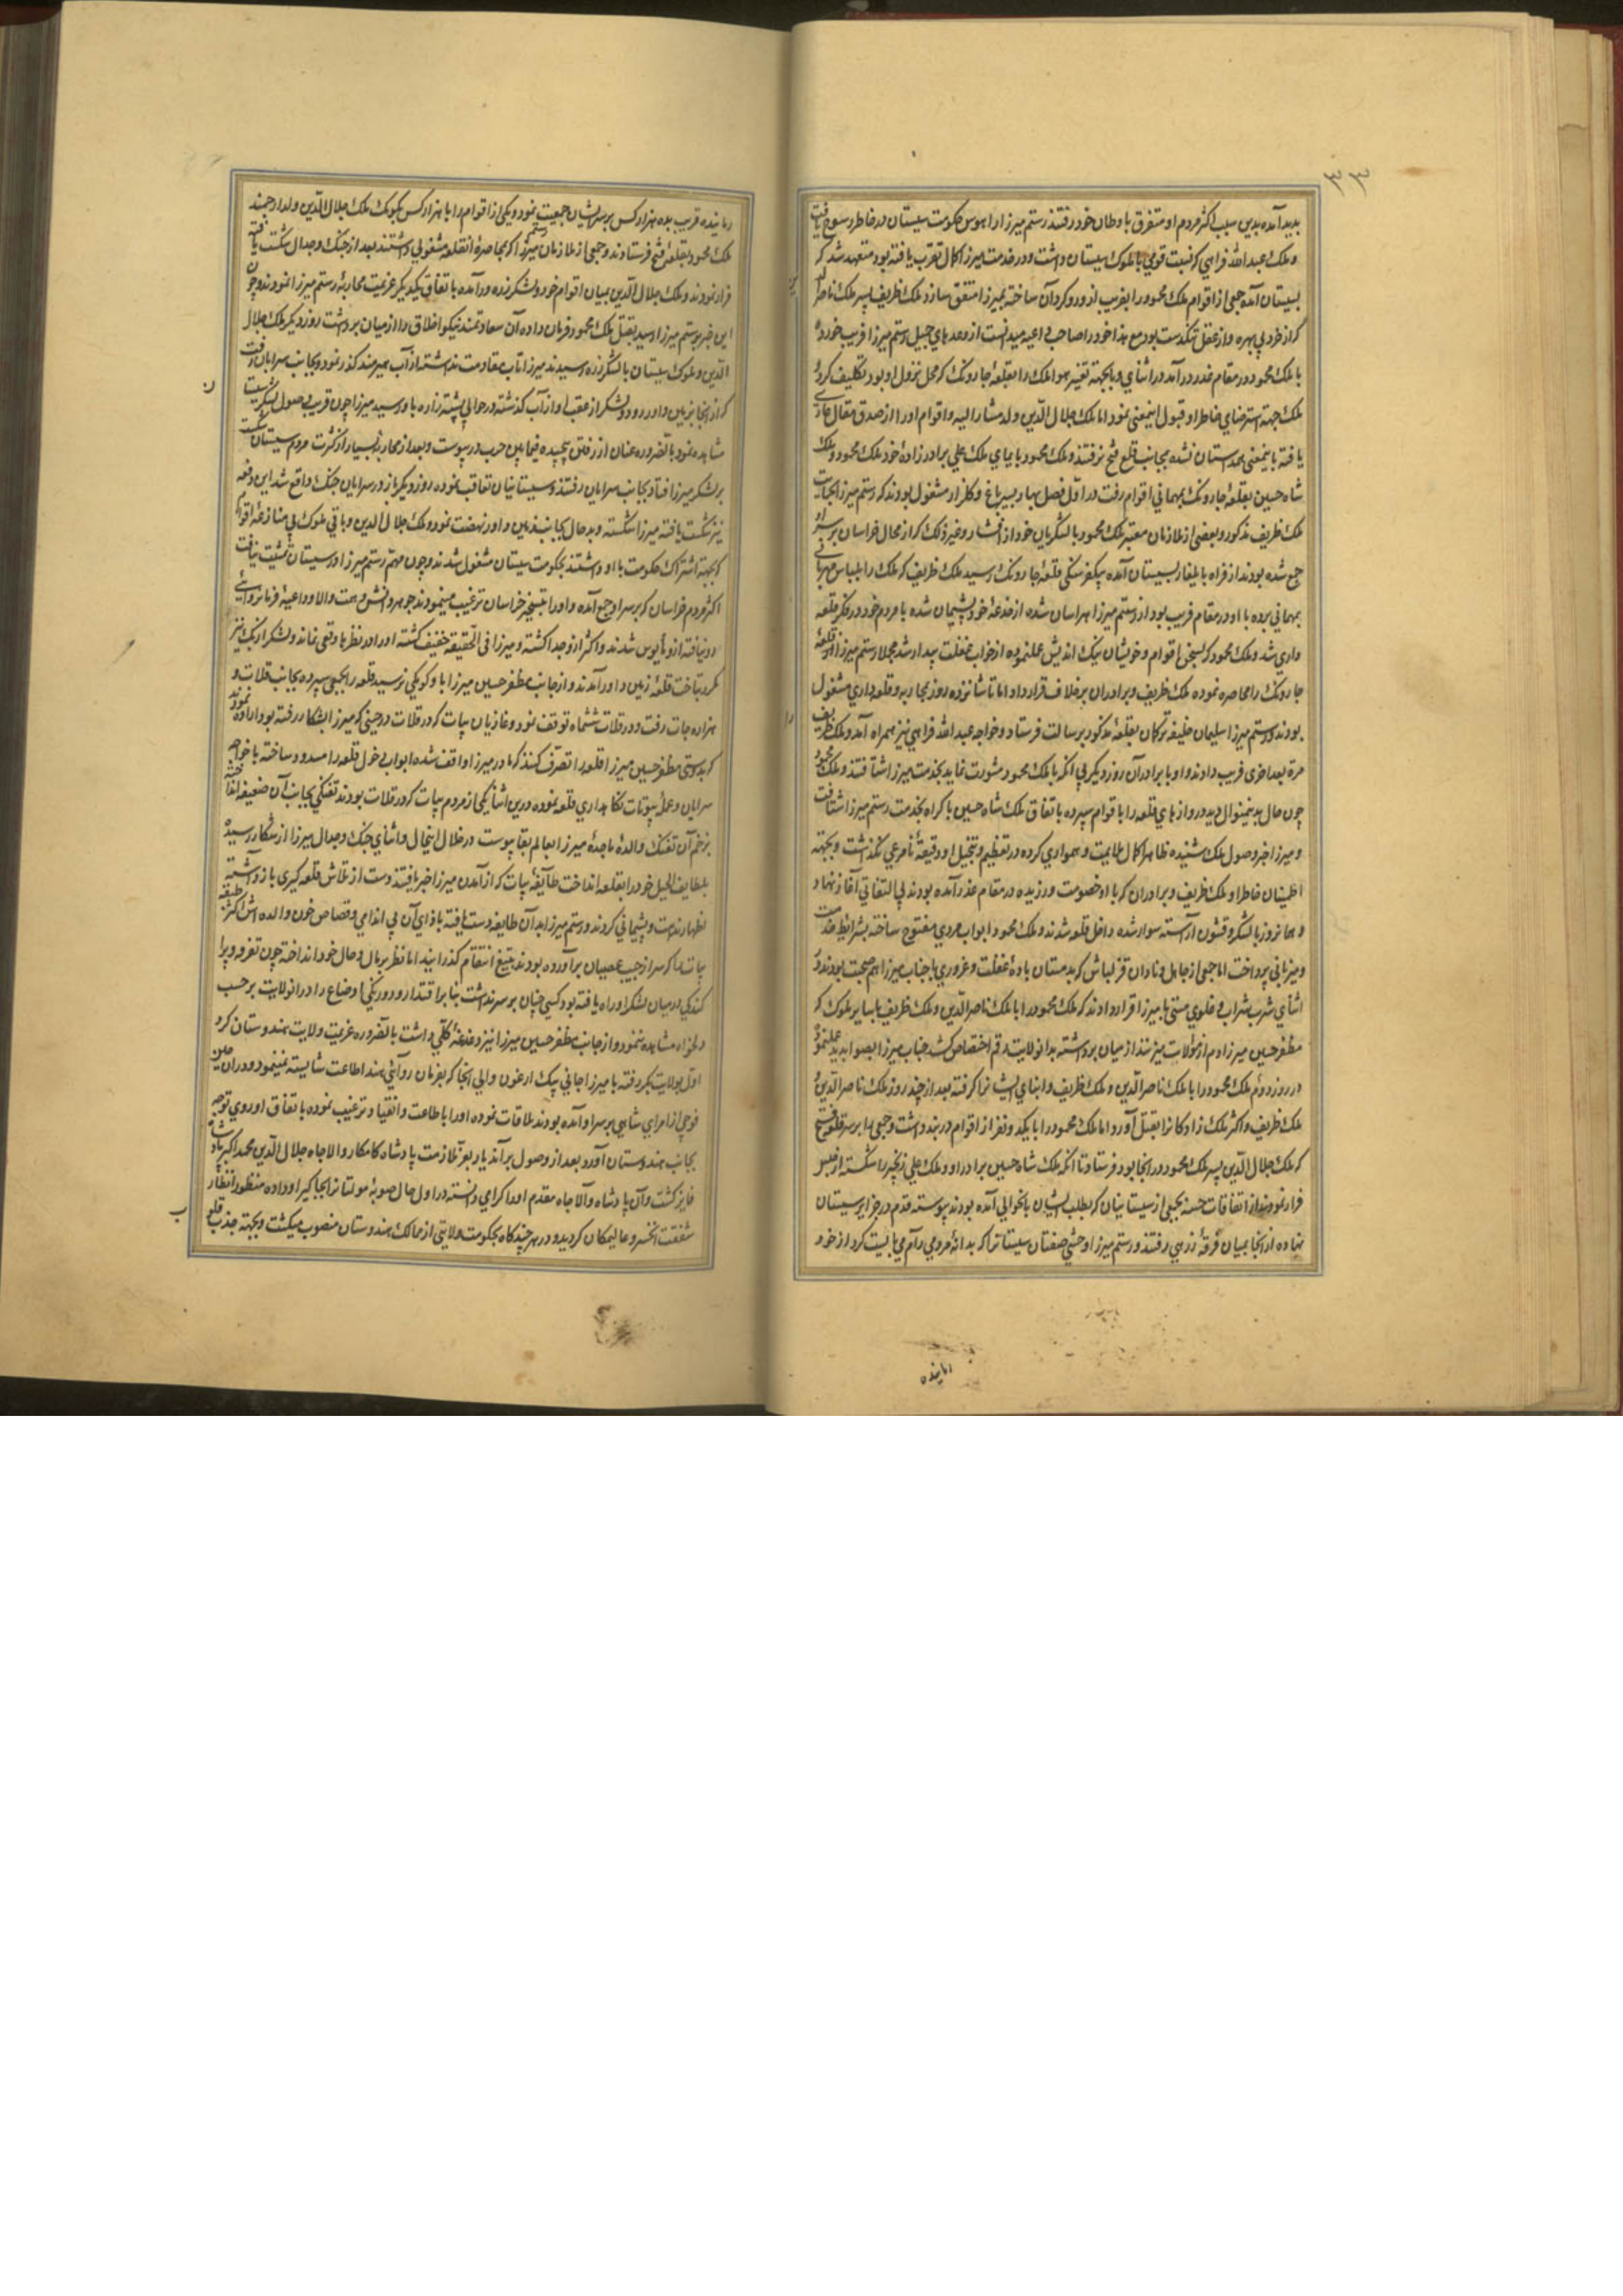 ٣٣
پدید آمده بدین سبب اکثر مردم او متفرق باوطان خود رفتند رستم میرزا را هوس حکومت سیستان در خاطر رسوخ یافت
و ملک عبدالله فراهی که نسبت قومی با ملوک سیستان داشت و در خدمت میرزا کمال تقرب یافته بود متعهد شد که
بسیستان آمده جمعی از اقوام ملک محمود را بفریب از و روکردان ساخته بمیرزا متفق سازد ملک ظریف پسر ملک ناصر
که از خرد بی بهره و از عقل تنکدست بود مع هذا خود را صاحب داعیه میدانست از وعدهای جمیل رستم میرزا فریب خورده
با ملک محمود در مقام غدر در آمد در اثنای و با بجهته تغییر هوا ملک را بقلعهٔ جارونک که محل نزول او بود تکلیف کرد
ملک جهته استرضای خاطر او قبول اینمعنی نمود اما ملک جلال الدین ولد مشار الیه و اقوام او را از صدق مقال عاری
یافته باینمعنی همداستان نشده بجانب قلعه فتح نرفتند و ملک محمود بایمای ملک علی برادرزادهٔ خود ملک محمودی و ملک
شاه حسین بقلعهٔ جارونک بمهمانی اقوام رفت در اول فصل بهار بسیر باغ و کلزار مشغول بودند که رستم میرزا بحمایت
ملک ظریف مذکور و بعضی از ملازمان معتبر ملک محمود با لشکریان خود از افشار و غیر ذلک که از محال خراسان بر سر او
جمع شده بودند از فراه بایلغار بسیستان آمده بیکفرسنکی قلعهٔ جارونک رسید ملک ظریف که ملک را بلباس مهربانی
بمهمانی برده با او در مقام فریب بود از رستم میرزا هراسان شده از خدعهٔ خود پشیمان شده با مردم خود در فکر قلعه
داری شد و ملک محمود که بسخن اقوام و خویشان نیک اندیش عمل ننموده از خواب غفلت بیدار شد مجملا رستم میرزا قلعهٔ
جارونک را محاصره نموده ملک ظریف و برادران بر خلاف قرارداد اما تا شانزده روز بمحاربه و قلعه داری مشغول
بودند و رستم میرزا سلیمان خلیفه ترکمان بقلعهٔ مذکور برسالت فرستاد و خواجه عبدالله فراهی نیز همراه آمد و ملک ظریف
مرة بعد اخری فریب دادند و او با برادران روز دیکر بی آنکه با ملک محمود مشورت نماید بخدمت میرزا شتافتند و ملک محمود
چون حال بدینمنوال دید دروازهای قلعه را باقوام سپرده باتفاق ملک شاه حسین باکراه بخدمت رستم میرزا شتافت
و میرزا خبر وصول ملک شنیده ظاهرا کمال ملایمت و همواری کرده در تعظیم و تبجیل او دقیقهٔ نامرعی نکذاشت و بجهته
اطمینان خاطر او ملک ظریف و برادران که با او خصومت ورزیده در مقام عذر آمده بودند بی التفاتی آغاز نهاد و
و همانروز با لشکر و قشون آراسته سوار شده داخل قلعه شدند و ملک محمود ابواب مردمی مفتوح ساخته بشرایط خدمت
و میزبانی پرداخت اما جمعی از جاهل و نادان قزلباش که بدمستان بادهٔ غفلت و غروری با جناب میرزا هم صحبت بودند در
اثنای شرب شراب و غلوی مستی با میرزا قرار دادند که ملک محمود را با ملک ناصرالدین و ملک ظریف با سایر ملوک که
مظفر حسین میرزا دم از موالات میزنند از میان برداشته بدانولایت رقم اختصاص کشد جناب میرزا بصوابدید عمل نموده
در روز دوم ملک محمود را با ملک ناصر الدین و ملک ظریف و ابنای ایشان را کرفته بعد از چند روز ملک ناصر الدین و
ملک ظریف و اکثر ملک زادکان را بقتل آورد اما ملک محمود را با یکدو نفر از اقوام در بند داشت و جمعی را بر سر قلعه فتح
که ملک جلال الدین پسر ملک محمود در انجا بود فرستاد تا آنکه ملک شاه حسین برادر او و ملک علی زنجیر را شکسته از حبس
فرار نمودند از اتفاقات حسنه بجمعی از سیستانیان که بطلب ایشان بانحوالی آمده بودند پیوسته قدم در جزایر سیستان
نهاده از انجا بمیان فرقهٔ زرهی رفتند و رستم میرزا وحشی صفتان سیستانرا که بدانهٔ مردمی رام می بایست کرد از خود
رمانیده
رمانیده قریب بده هزار کس بر سر ایشان جمعیت نمود و یکی از اقوام را با هزار کس بکومک ملک جلال الدین ولد ارجمند
ملک محمود بقلعهٔ فتح فرستادند و جمعی از ملازمان رستم میرزا که بمحاصرهٔ آنقلعه مشغولی داشتند بعد از جنک و جدال شکست یافته
فرار نمودند و ملک جلال الدین بمیان اقوام خود و لشکر زره در آمده باتفاق یکدیکر عزیمت محاربهٔ رستم میرزا نمودند و چون
این خبر برستم میرزا رسید بقتل ملک محمود فرمان داده آن سعادتمند نیکو اخلاق را از میان برداشت روز دیکر ملک جلال
الدین و ملوک سیستان با لشکر زره رسیدند میرزا تاب مقاومت نداشته از آب هیرمند کذر نمود و بجانب سرابان رفت
که از انجا بزمین داور رود و لشکر از عقب او از آب کذشته در حوالی پشته زاره باو رسید میرزا چون قریب وصول لشکر سیستان
مشاهده نمود بالضروره عنان از رفتن پیچیده فیمابین حرب در پیوست و بعد از محاربهٔ بسیار از کثرت مردم سیستان شکست
بر لشکر میرزا افتاد بجانب سرابان رفتند و سیستانیان تعاقب نموده روز دیکر باز در سرابان جنک واقع شد این دفعه
نیز شکست یافته میرزا شکسته و بدحال بجانب زمین داور نهضت نمود و ملک جلال الدین و باقی ملوک بی منازعهٔ اقوام
که بجهته اشتراک حکومت با او داشتند بحکومت سیستان مشغول شدند و چون مهم رستم میرزا در سیستان تمشیت نیافت
اکثر مردم خراسان که بر سر او جمع آمده و او را بتسخیر خراسان ترغیب مینمودند جوهر دانش و همت والا و داعیهٔ فرمانروائی
در و نیافته از و مأیوس شدند و اکثر از و جدا کشته و میرزا فی الحقیقه خفیف کشته او را در نظرها وقعی نماند و لشکر ازبک نیز
مکرر بتاخت قلعهٔ زمین داور آمدند و از جانب مظفر حسین میرزا باو کومکی نرسید قلعه را بجمعی سپرده بجانب قلات و
هزاره جات رفت و در قلات ششماه توقف نمود و غازیان بیات که در قلات در حینی که میرزا بشکار رفته بود اراده نمودند
که بدوستی مظفر حسین میرزا قلعه را تصرف کنند که مادر میرزا واقف شده ابواب دخول قلعه را مسدود ساخته با خواجه
سرایان و عملهٔ بیوتات نکاهداری قلعه نموده درین اثنا یکی از مردم بیات که در قلات بودند تفنکی بجانب آن ضعیفه انداخته
بزخم آن تفنک والدهٔ ماجدهٔ میرزا بعالم بقا پیوست در خلال اینحال و اثنای جنک و جدال میرزا از شکار رسیده
بلطایف الحیل خود را بقلعه انداخت طایفهٔ بیات که از آمدن میرزا خبر یافتند دست از تلاش قلعه کیری باز داشته
اظهار ندامت و پشیمانی کردند و رستم میرزا بدان طایفه دست یافته بازای آن بی اندامی و قصاص خون والده اش اکثر طبقه
بیات را که سر از جیب عصیان برآورده بودند بتیغ انتقام کذرانیدند اما نظر بمآل و حال خود انداخته چون تفرقه و پرا
کندکی در میان لشکر او راه یافته بود و کسی چنان بر سر نداشت بنا بر اقتدار و دورنکی اوضاع را در آنولایت بر حسب
دلخواه مشاهده ننمود و از جانب مظفر حسین میرزا نیز دغدغهٔ کلی داشت بالضروره عزیمت ولایت هندوستان کرد
اول بولایت بکر رفته با میرزا جانی بیک ارغون والی انجا که بفرمان روائی هند اطاعت شایسته نمینمود و در ان حین
فوجی از امرای شاهی بر سر او آمده بودند ملاقات نموده او را باطاعت و انقیاد ترغیب نموده باتفاق او روی توجه
بجانب هندوستان آورد و بعد از وصول بر آندیار بعز ملازمت پادشاه کامکار والاجاه جلال الدین محمد اکبر پادشاه
فایز کشت و آن پادشاه والاجاه مقدم او را کرامی دانسته در اول حال صوبهٔ مولتانرا بجاکیر او داده منظور انظار
شفقت آنخسرو عالیمکان کردید و در هر چند کاه بحکومت ولایتی از ممالک هندوستان منصوب میکشت و بجهته جذب قلوب